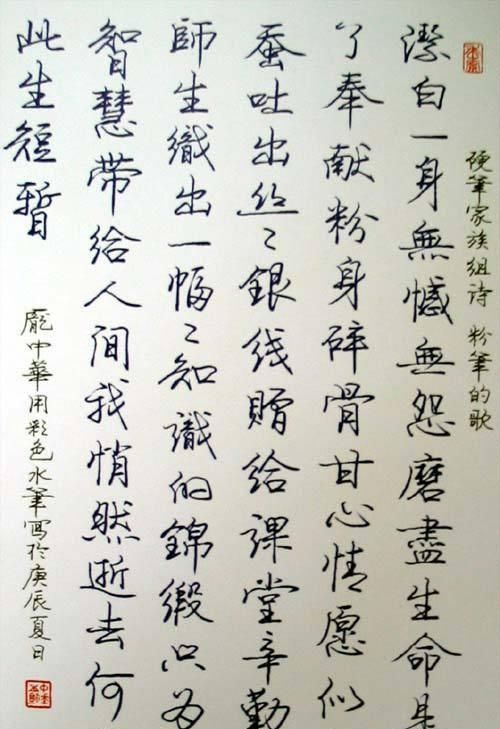 硬筆家族組詩 粉筆的歌
潔白一身無憾無怨磨盡生命是
了奉献粉身碎骨甘心情愿似
蚕吐出丝〻銀线贈给课堂辛勤
師生織出一幅〻知識的錦缎只为
智慧带给人间我悄然逝去何
此生短暫
龐中華用彩色水筆寫於庚辰夏日